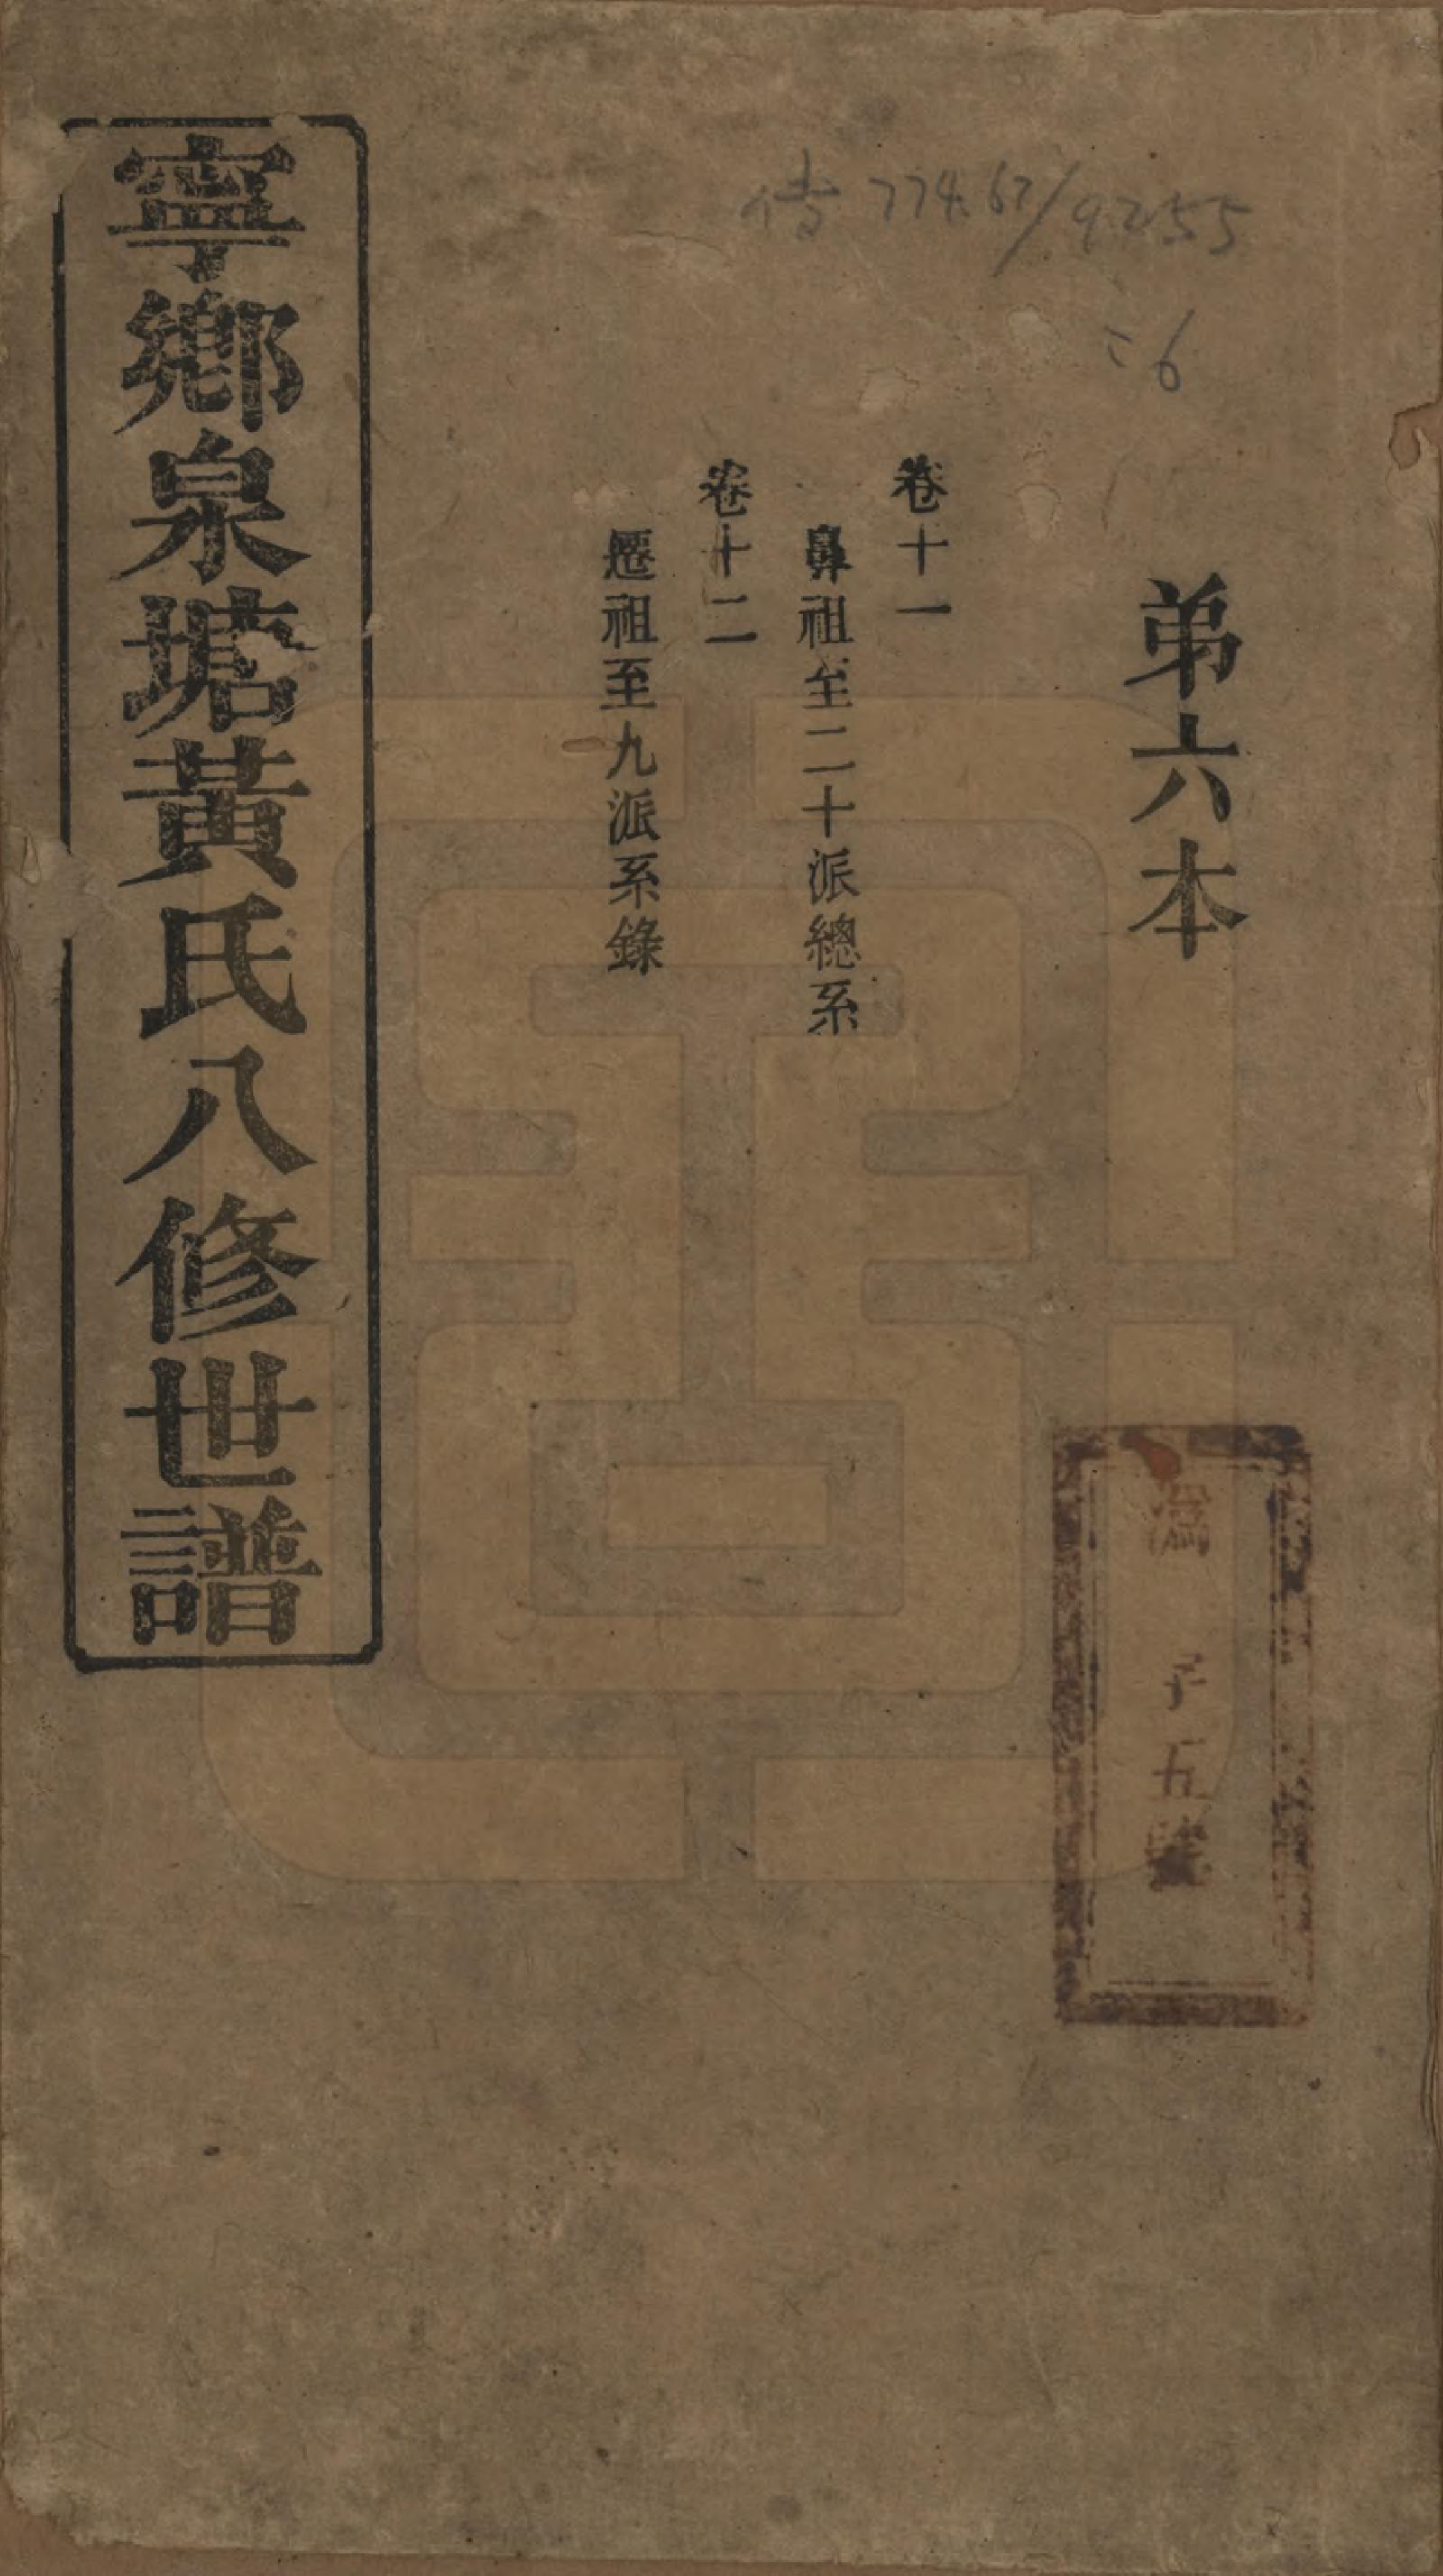 傳 774.67/9255
:6
弟六本
卷十一
鼻祖至二十派總系
卷十二
遷祖至九派系錄
寧鄉泉塘黃氏八修世譜
溈
字五號